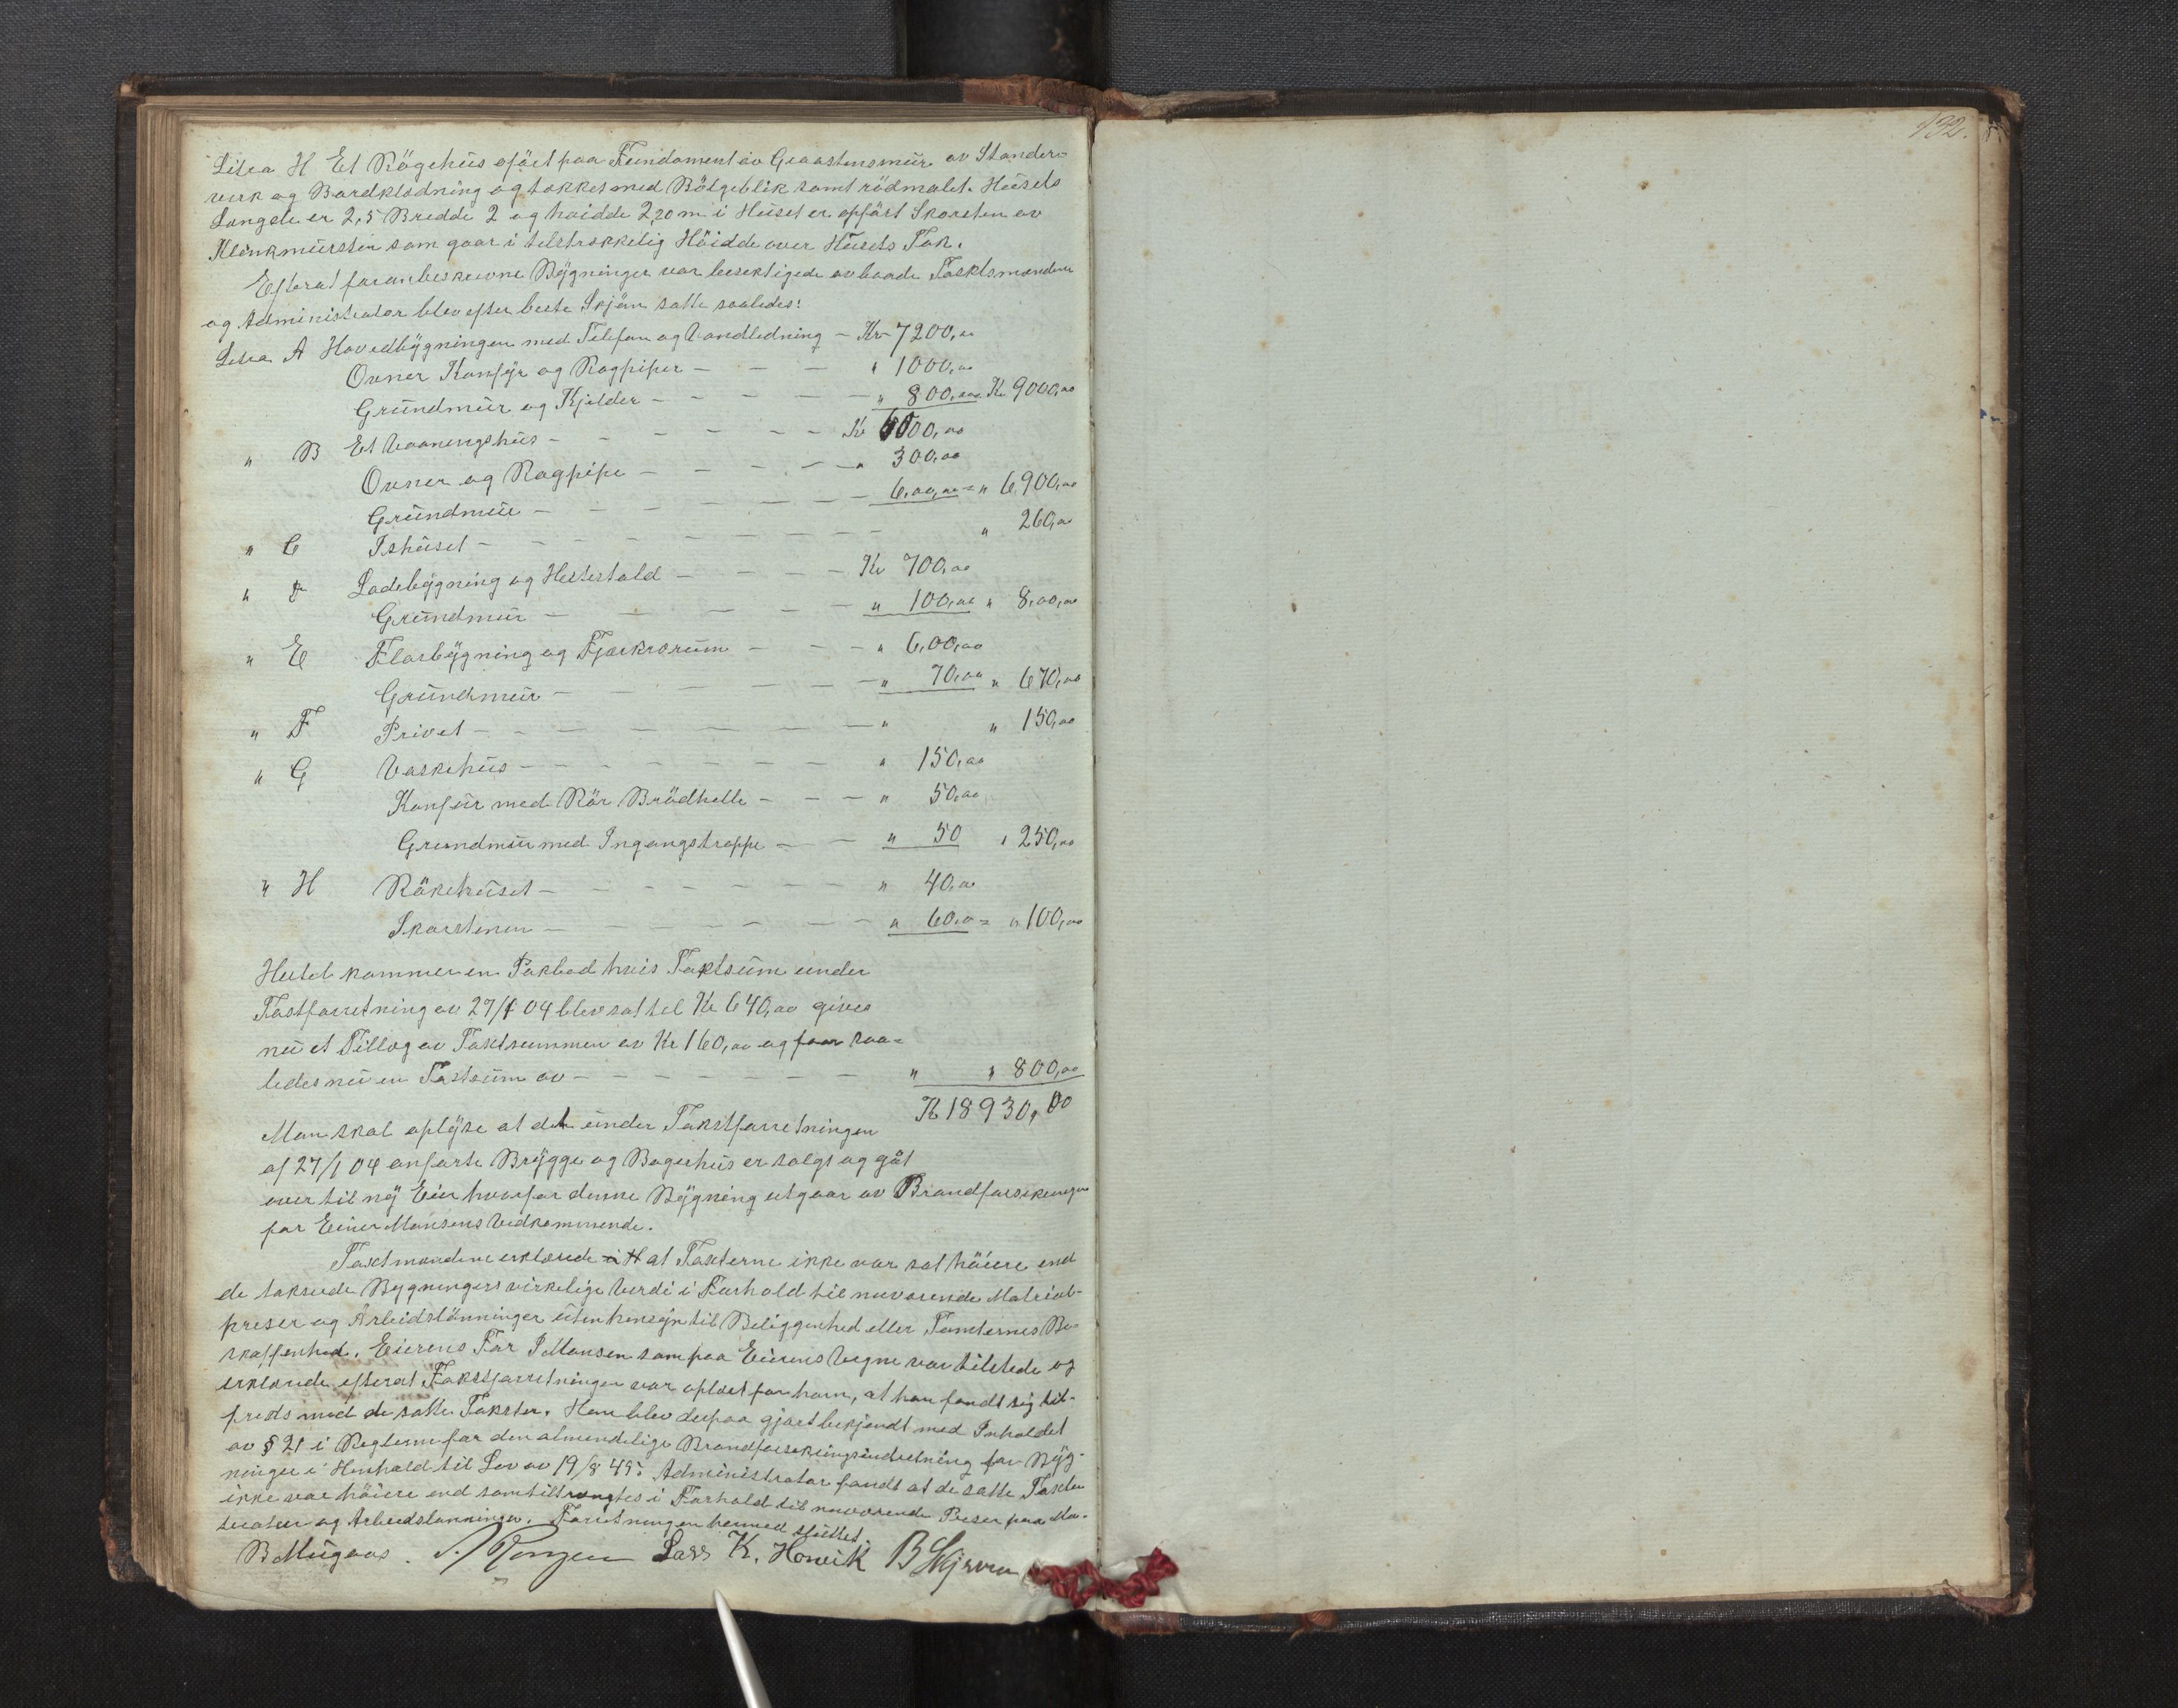 Litra H Et Rögehus opfört paa Fundament av Graastensmur av Stander-
verk og Bordklædning og tækket med Bölgeblik samt rödmalet. Husets
Længde er 2,5 Bredde 2 og høidde 2,20 m i Huset er opfört Skorsten av
Klinkmursten som gaar i telstrækkelig Höidde over Husets Tak.
Efterat foranbeskrevne Bygninger var besektigede av baade Taktsmændene
og Administrator blev efter beste Skjön satte saaledes:
Litra A Hovedbygningen med Telefon og Vandledning – Kr 7200,00
Ovner Komfyr og Rogpiper – – – " 1000,00
Grundmur og Kjelder – – – – – " 800,00 = Kr 9000,00
" B Et Vaaningshus – – – – – – Kr 6000,00
Ovner og Rogpipe – – – – – " 300,00
Grundmur – – – – – – – 6,00,00 = " 6900,00
" C Ishuset – – – – – – – – " 260,00
" D Ladebygning og Hestestald – – – – Kr 700,00
Grundmur – – – – – " 100,00 " 8,00,00
" E Fløsbygning og Fjærkrorum – – – " 6,00,00
Grundmur – – – – – – " 70,00 " 670,00
" F Privet – – – – – – – " " 150,00
" G Vaskehus – – – – – – – " 150,00
Komfur med Rör Brödhelle – – – " 50,00
Grundmur med Ingangstrappe – – " 50 " 250,00
" H Rökehuset – – – – – – – " 40,00
Skorstenen – – – – – – " 60,00 = " 100,00
Hertil kommer en Pakbod hvis Taktsum under
Taktforretning av 27/1 04 blev sat til Kr 640,00 gives
nu et Tillæg av Taktsummen av Kr 160,00 og faar saa-
ledes nu en Taktsum av – – – – – – – " " 800,00
Kr 18930,00
Man skal oplyse at den under Takstforretningen
af 27/1 04 anførte Brygge og Bagerhus er solgt og gåt
over til ny Eier hvorfor denne Bygning utgaar av Brandforsikringen
for Einer Monsens Vedkommende.
Taxtmændene erklærede at Taxterne ikke var sat höiere end
de takserede Bygningers virkelige Verdi i Forhold til nuværende Matrial-
preser og Arbeidslönninger uten hensyn til Beliggenhed eller Tomternes Be-
skaffenhed. Eierens Far P Monsen som paa Eierens Vegne var tilstede og
erklærede efterat Takstforretningen var oplæst for ham, at han fandt sig til-
freds med de satte Takster. Han blev derpaa gjort bekjendt med Inholdet
av § 21 i Reglerne for den almendelige Brandforsikringsindretning for Byg-
ninger i Henhold til Lov av 19/8 45. Administrator fandt at de satte Taxter
ikke var höiere end som tiltrængtes i Forhold til nuværende Preser paa Ma-
terialier og Arbeidslønninger. Forretningen hermed sluttet.
B Mugaas . Lars K. Howik B Skjævra
132.